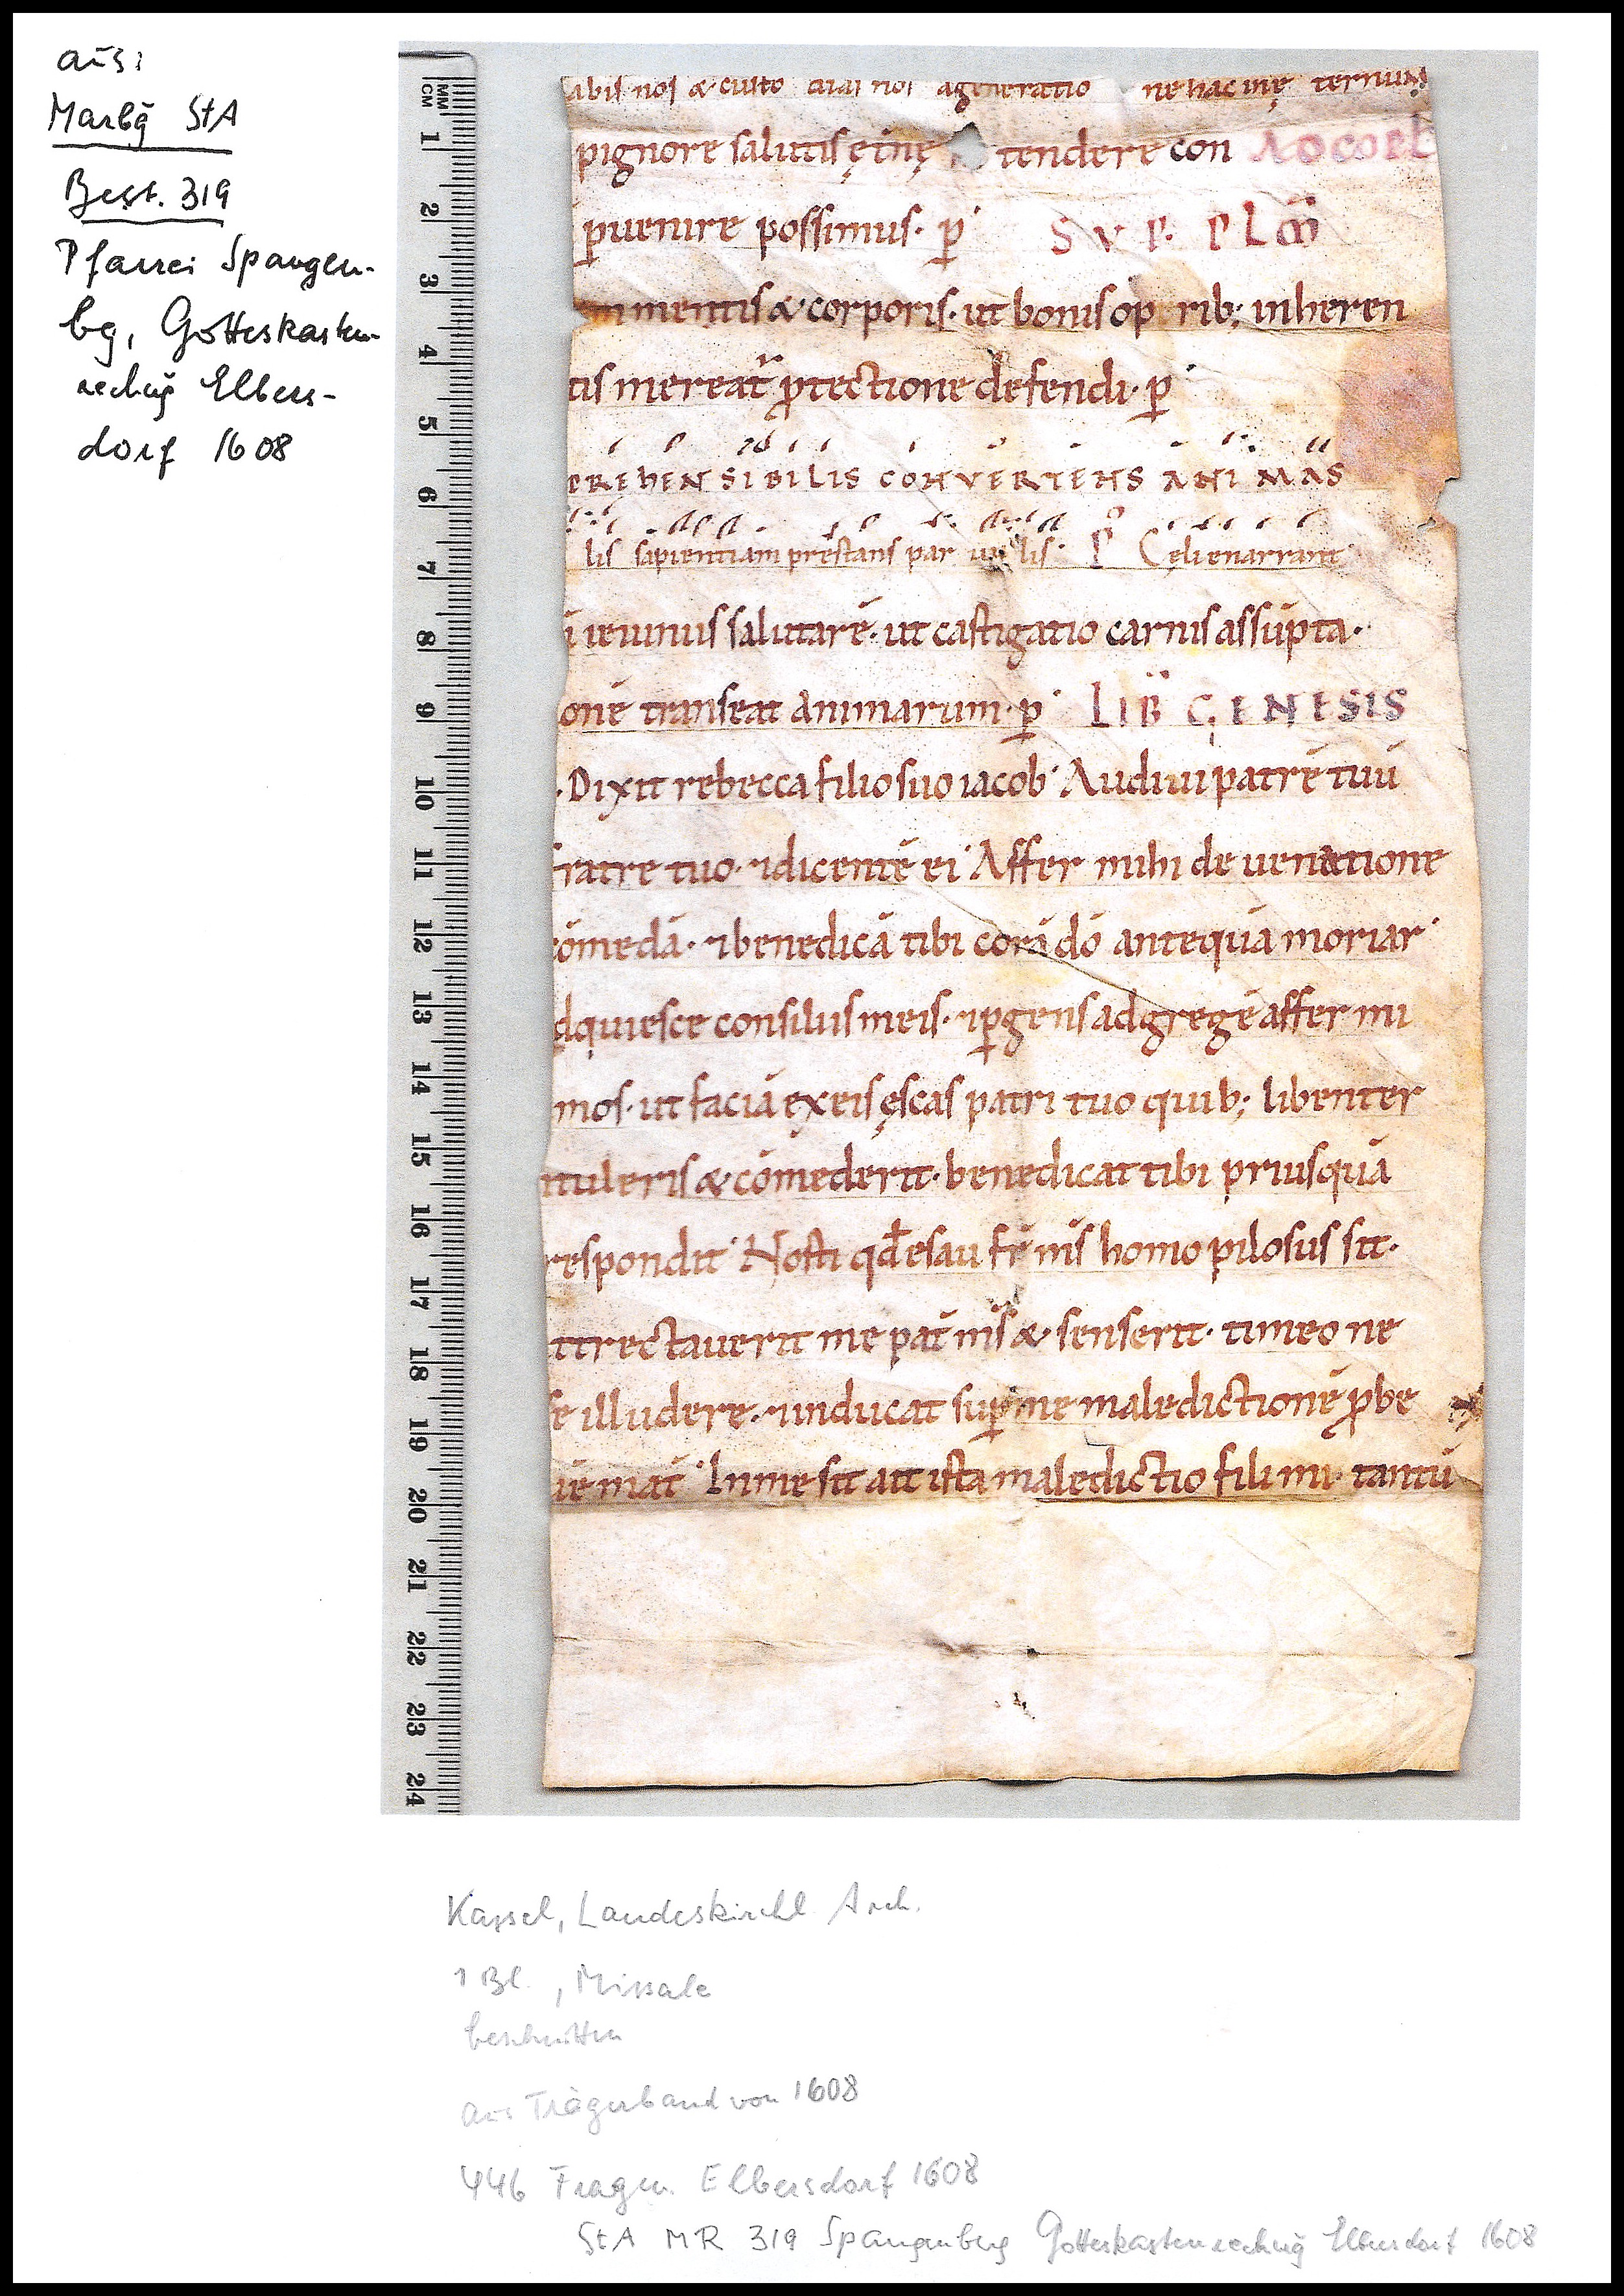 aus:
Marbg StA
Best. 319
Pfarrei Spangen-
bg, Gotteskasten-
rechng Elbers-
dorf 1608
MM
CM
1
2
3
4
5
6
7
8
9
10
11
12
13
14
15
16
17
18
19
20
21
22
23
24
abis nos & custo diat nos a generatio ne hac in ę ternum
pignore salutis ę inę tendere con
puenire possimus· p̄ SVP PLM̄
mentis & corporis· ut bonis op rib; inheren
tis mereat᷑ ptectione defendi· p̄
PREHENSIBILIS CONVERTENS ANIMAS
lis sapientiam prestans par uu lis· P Cęli enarrant
i ieiuniis salutarē· ut castigatio carnis assūpta·
onē transeat animarum· p̄ LIB GENESIS
·Dixit rebecca filio suo iacob· Audiui patrē tuū
fratre tuo· ⁊dicentē ei· Affer mihi de uenatione
cōmedā· ⁊benedicā tibi corā dō antequā moriar·
dquiesce consiliis meis· ⁊pgens ad gregē affer mi
mos· ut faciā ex eis ęscas patri tuo quib; libenter
ntuleris & cōmederit· benedicat tibi priusquā
respondit· Nosti qd̄ esau fr̄ ms̄ homo pilosus sit·
ttrectauerit me pat̄ ms̄ & senserit· timeo ne
se illudere· ⁊inducat sup me maledictionē p be
iē mat̄· In me sit ait ista maledictio fili mi· tantū
Kassel, Landeskirchl. Arch.
1 Bl., Missale
beschnitten
aus Trägerband von 1608
446 Fragm. Elbersdorf 1608
StA MR 319 Spangenberg Gotteskastenrechng Elbersdorf 1608